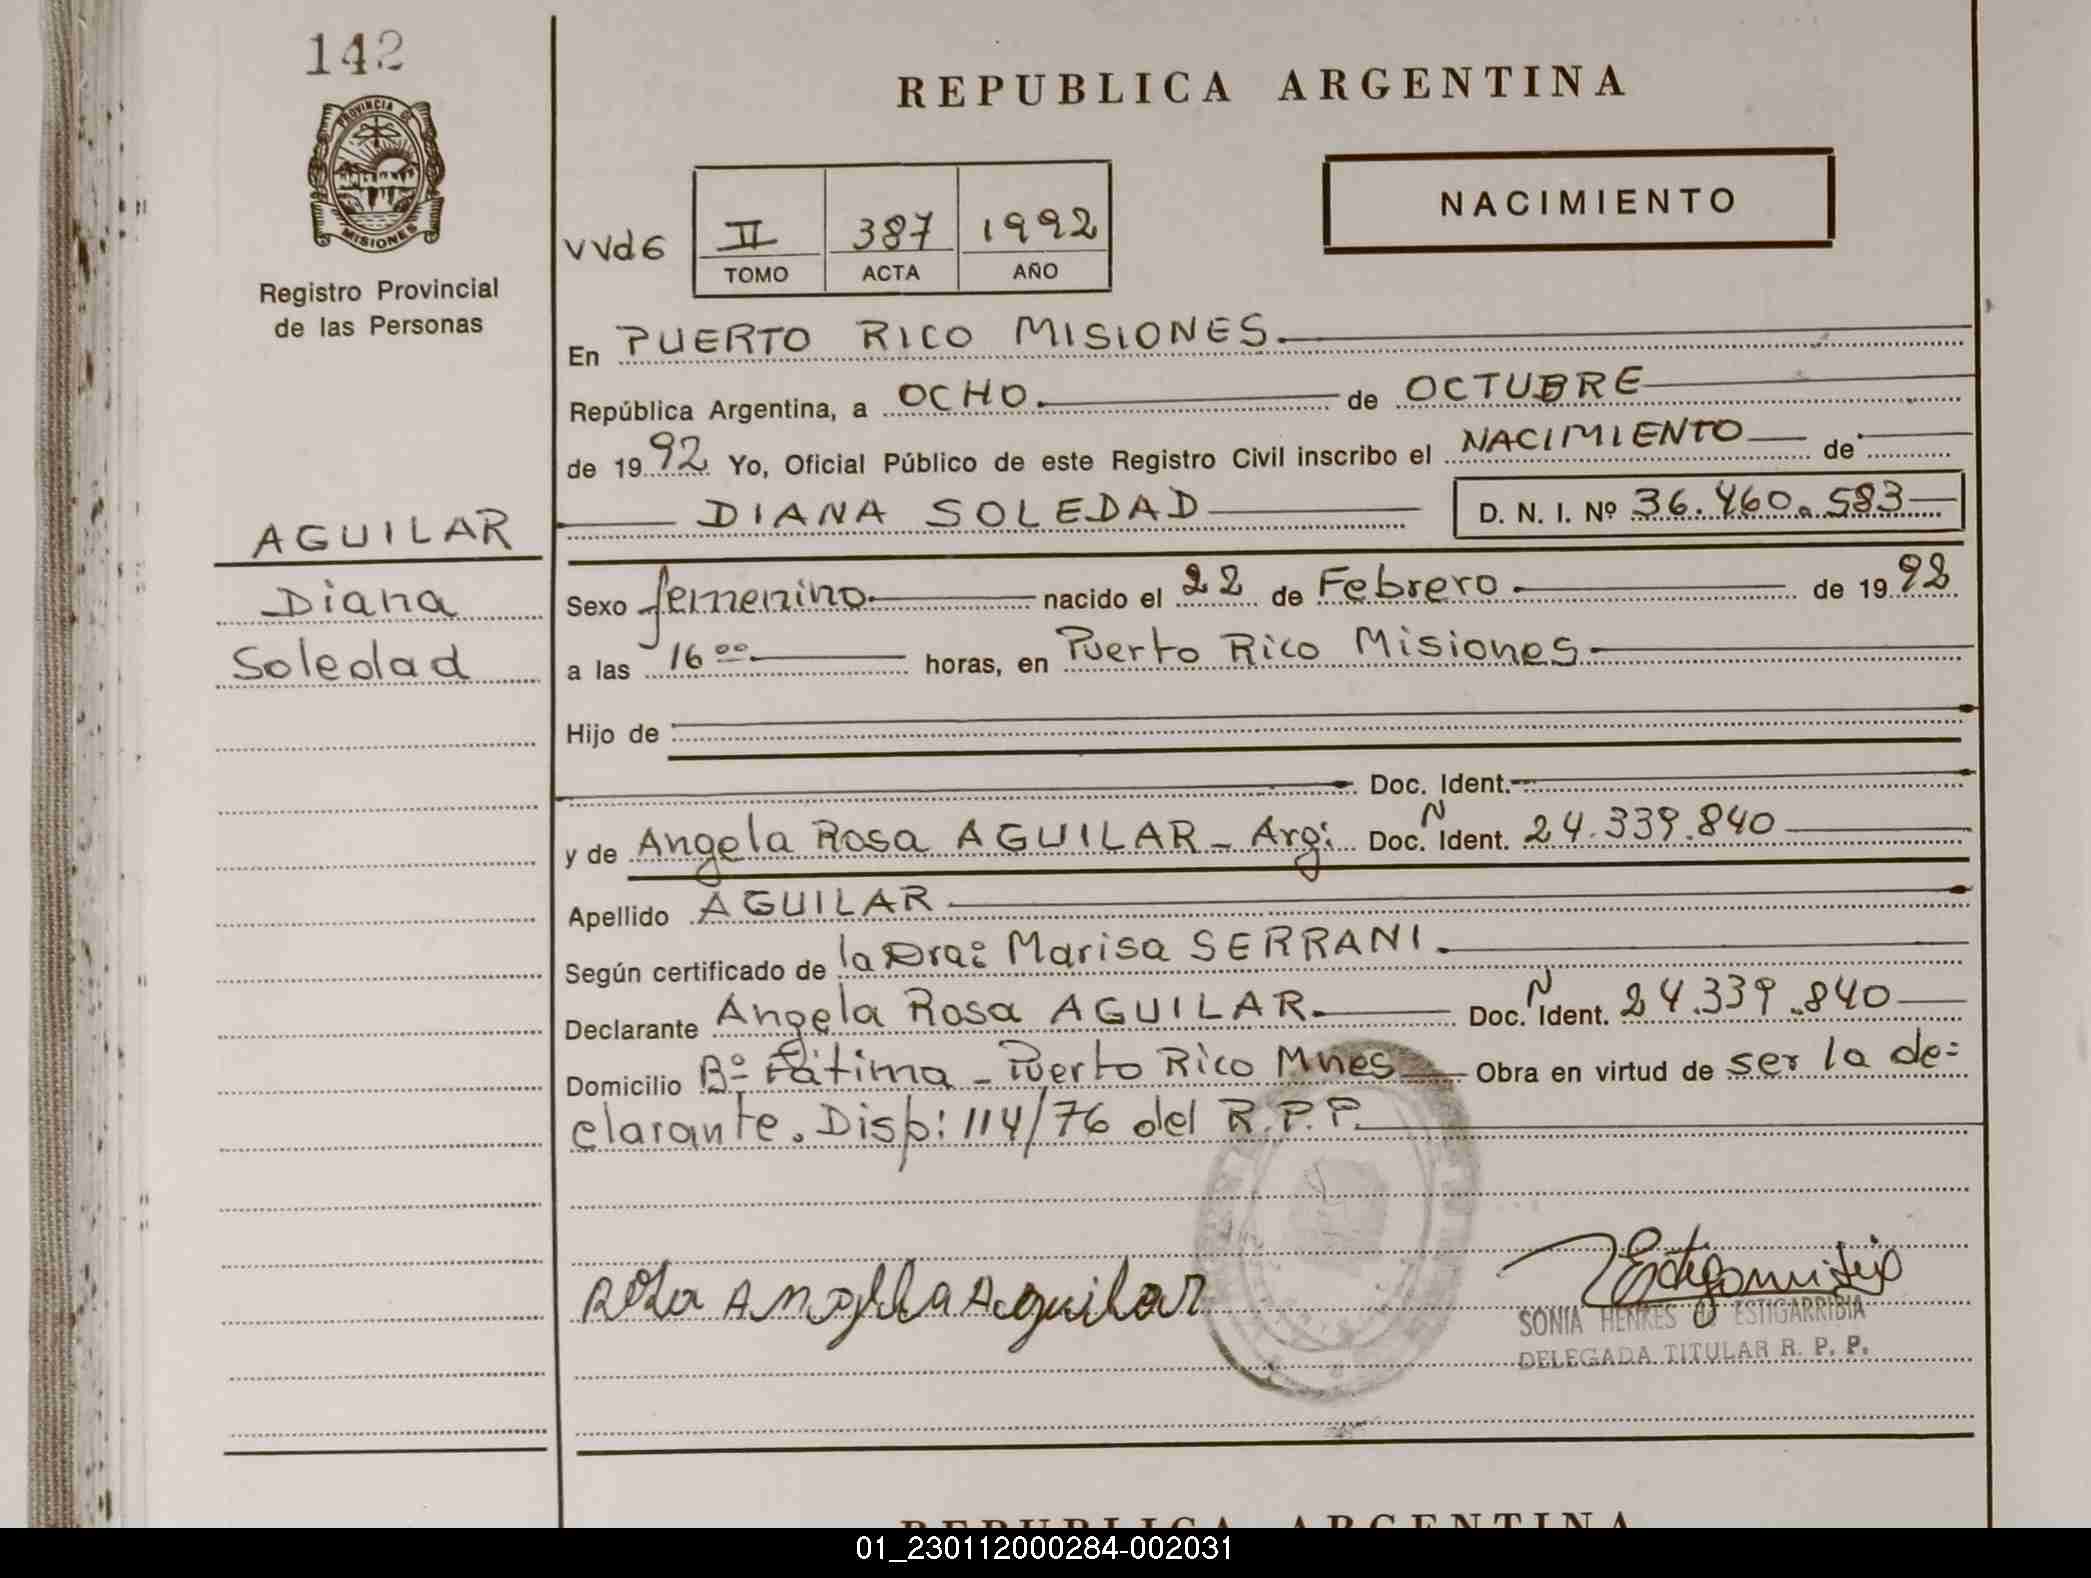 142
PROVINCIA DE
MISIONES
Registro Provincial
de las Personas
REPUBLICA ARGENTINA
NACIMIENTO
VVd6
II 387 1992
TOMO ACTA AÑO
En PUERTO RICO MISIONES
República Argentina, a OCHO de OCTUBRE
de 1992 Yo, Oficial Público de este Registro Civil inscribo el NACIMIENTO de
DIANA SOLEDAD D. N. I. Nº 36.460.583
AGUILAR
Diana
Soledad
Sexo femenino nacido el 22 de Febrero de 1992
a las 16 00 horas, en Puerto Rico Misiones
Hijo de
Doc. Ident.
y de Angela Rosa AGUILAR - Arg: Doc. N Ident. 24.339.840
Apellido AGUILAR
Según certificado de la Dra: Marisa SERRANI.
Declarante Angela Rosa AGUILAR. Doc. N Ident. 24.339.840
Domicilio Bº Fátima - Puerto Rico Mnes Obra en virtud de ser la de=
clarante. Disp: 114/76 del R.P.P.
Aguilar
SONIA HENKES DE ESTIGARRIBIA
DELEGADA TITULAR R. P. P.
REPUBLICA ARGENTINA
01_230112000284-002031